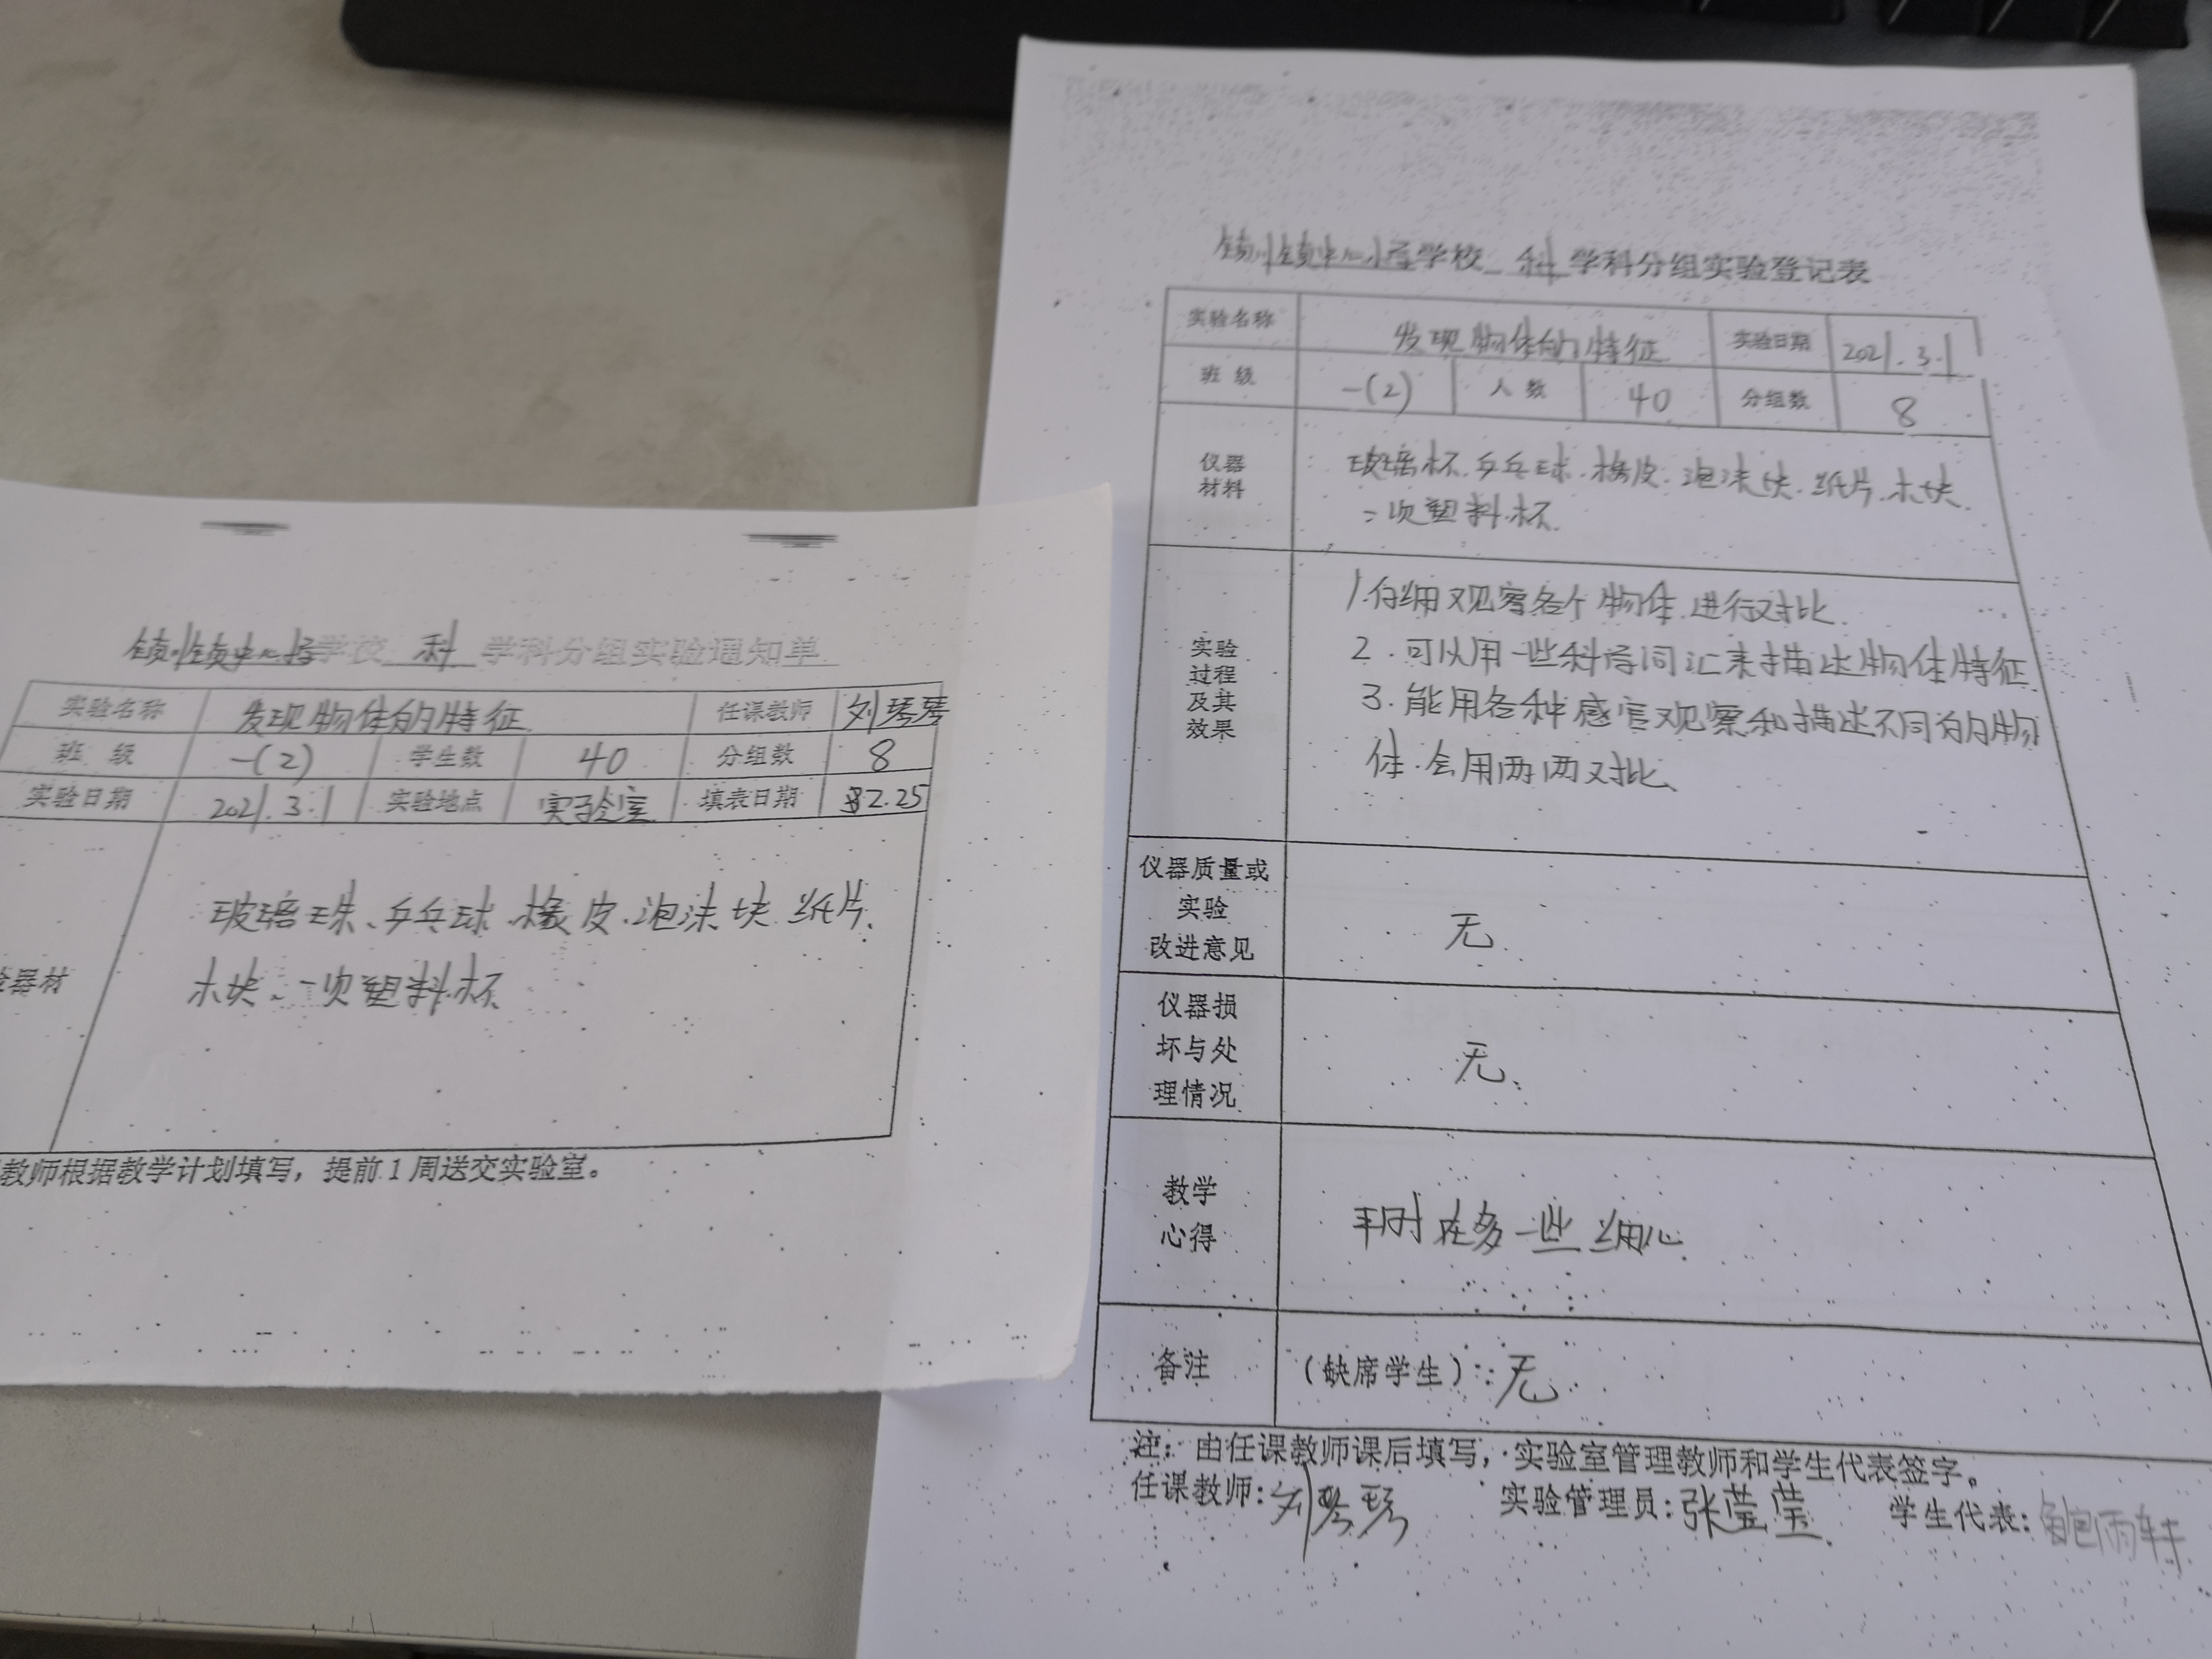 学校 科 学科分组实验通知单
实验名称 发现物体的特征 任课教师 刘琴琴
班 级 一(2) 学生数 40 分组数 8
实验日期 2021.3.1 实验地点 实验室 填表日期 2.25
器材
玻璃珠、乒乓球.橡皮.泡沫块 纸片.
木块、一次塑料杯
教师根据教学计划填写，提前1周送交实验室。
学校 科 学科分组实验登记表
实验名称 发现物体的特征 实验日期 2021.3.1
班 级 一(2) 人 数 40 分组数 8
仪器
材料
玻璃杯.乒乓球.橡皮.泡沫块.纸片.木块.
一次塑料杯.
实验
过程
及其
效果
1.仔细观察各个物体.进行对比.
2.可以用一些科学词汇来描述物体特征.
3.能用各种感官观察和描述不同的物
体.会用两两对比、
仪器质量或
实验
改进意见
无.
仪器损
坏与处
理情况
无、
教学
心得
平时在多一些细心
备注 （缺席学生）：无
注：由任课教师课后填写，实验室管理教师和学生代表签字。
任课教师:刘琴琴 实验管理员:张莹莹 学生代表: